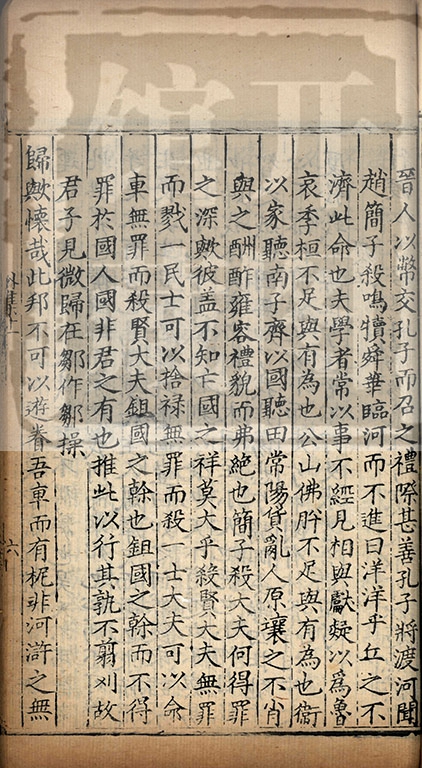 晉人以幣交孔子而召之禮際甚善孔子將渡河聞
趙簡子殺鳴犢舜華臨河而不進曰洋洋乎丘之不
濟此命也夫學者常以事不經見相與獻疑以爲魯
哀季桓不足與有為也公山佛肸不足與有為也衛
以家聽南子齊以國聽田常陽貨亂人原壤之不肖
與之酬酢雍容禮貌而弗絶也簡子殺大夫何得罪
之深歟彼盖不知亡國之祥莫大乎殺賢大夫無罪
而戮一民士可以捨禄無罪而殺一士大夫可以命
車無罪而殺賢大夫鉏國之幹也鉏國之幹而不得
罪於國人國非君之有也推此以行其孰不翦刈故
君子見微歸在鄒作鄒操
歸歟懷哉此邦不可以遊眷吾車而有柅非河滸之無
六